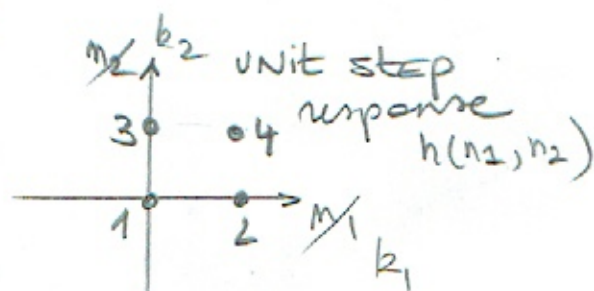 n2 k2 unit step
response
h(n1, n2)
3 4
1 2 n1
k1